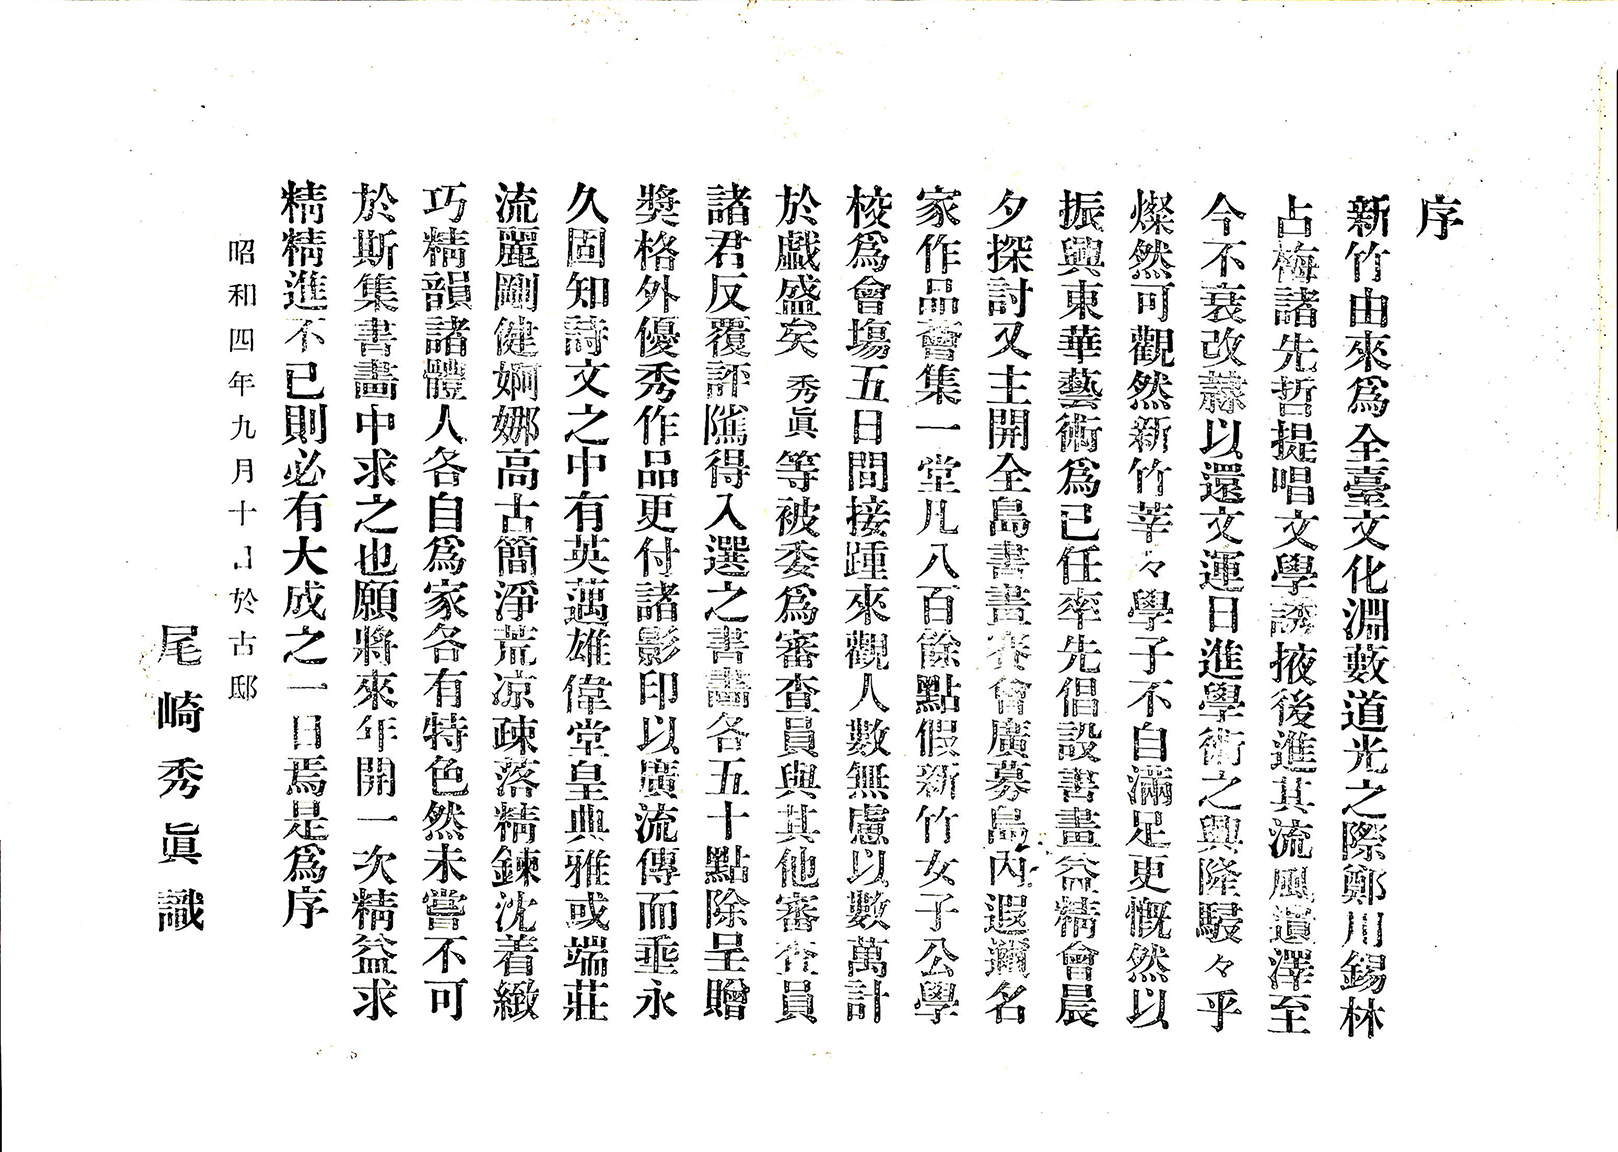 序
新竹由來爲全臺文化淵藪道光之際鄭用錫林
占梅諸先哲提唱文學誘掖後進其流風遺澤至
今不衰改隷以還文運日進學術之興隆駸々乎
燦然可觀然新竹莘々學子不自滿足更慨然以
振興東華藝術爲己任率先倡設書畫益精會晨
夕探討又主開全島書畫賽會廣募島內遐邇名
家作品薈集一堂凡八百餘點假新竹女子公學
校爲會塲五日間接踵來觀人數無慮以數萬計
於戲盛矣 秀眞 等被委爲審查員與其他審查員
諸君反覆評隲得入選之書畵各五十點除呈贈
獎格外優秀作品更付諸影印以廣流傳而垂永
久固知詩文之中有英邁雄偉堂皇典雅或端莊
流麗剛健婀娜高古簡淨荒凉疎落精鍊沈着緻
巧精韻諸體人各自爲家各有特色然未嘗不可
於斯集書畵中求之也願將來年開一次精益求
精精進不已則必有大成之一日焉是爲序
昭和四年九月十日於古邸
尾崎秀眞識